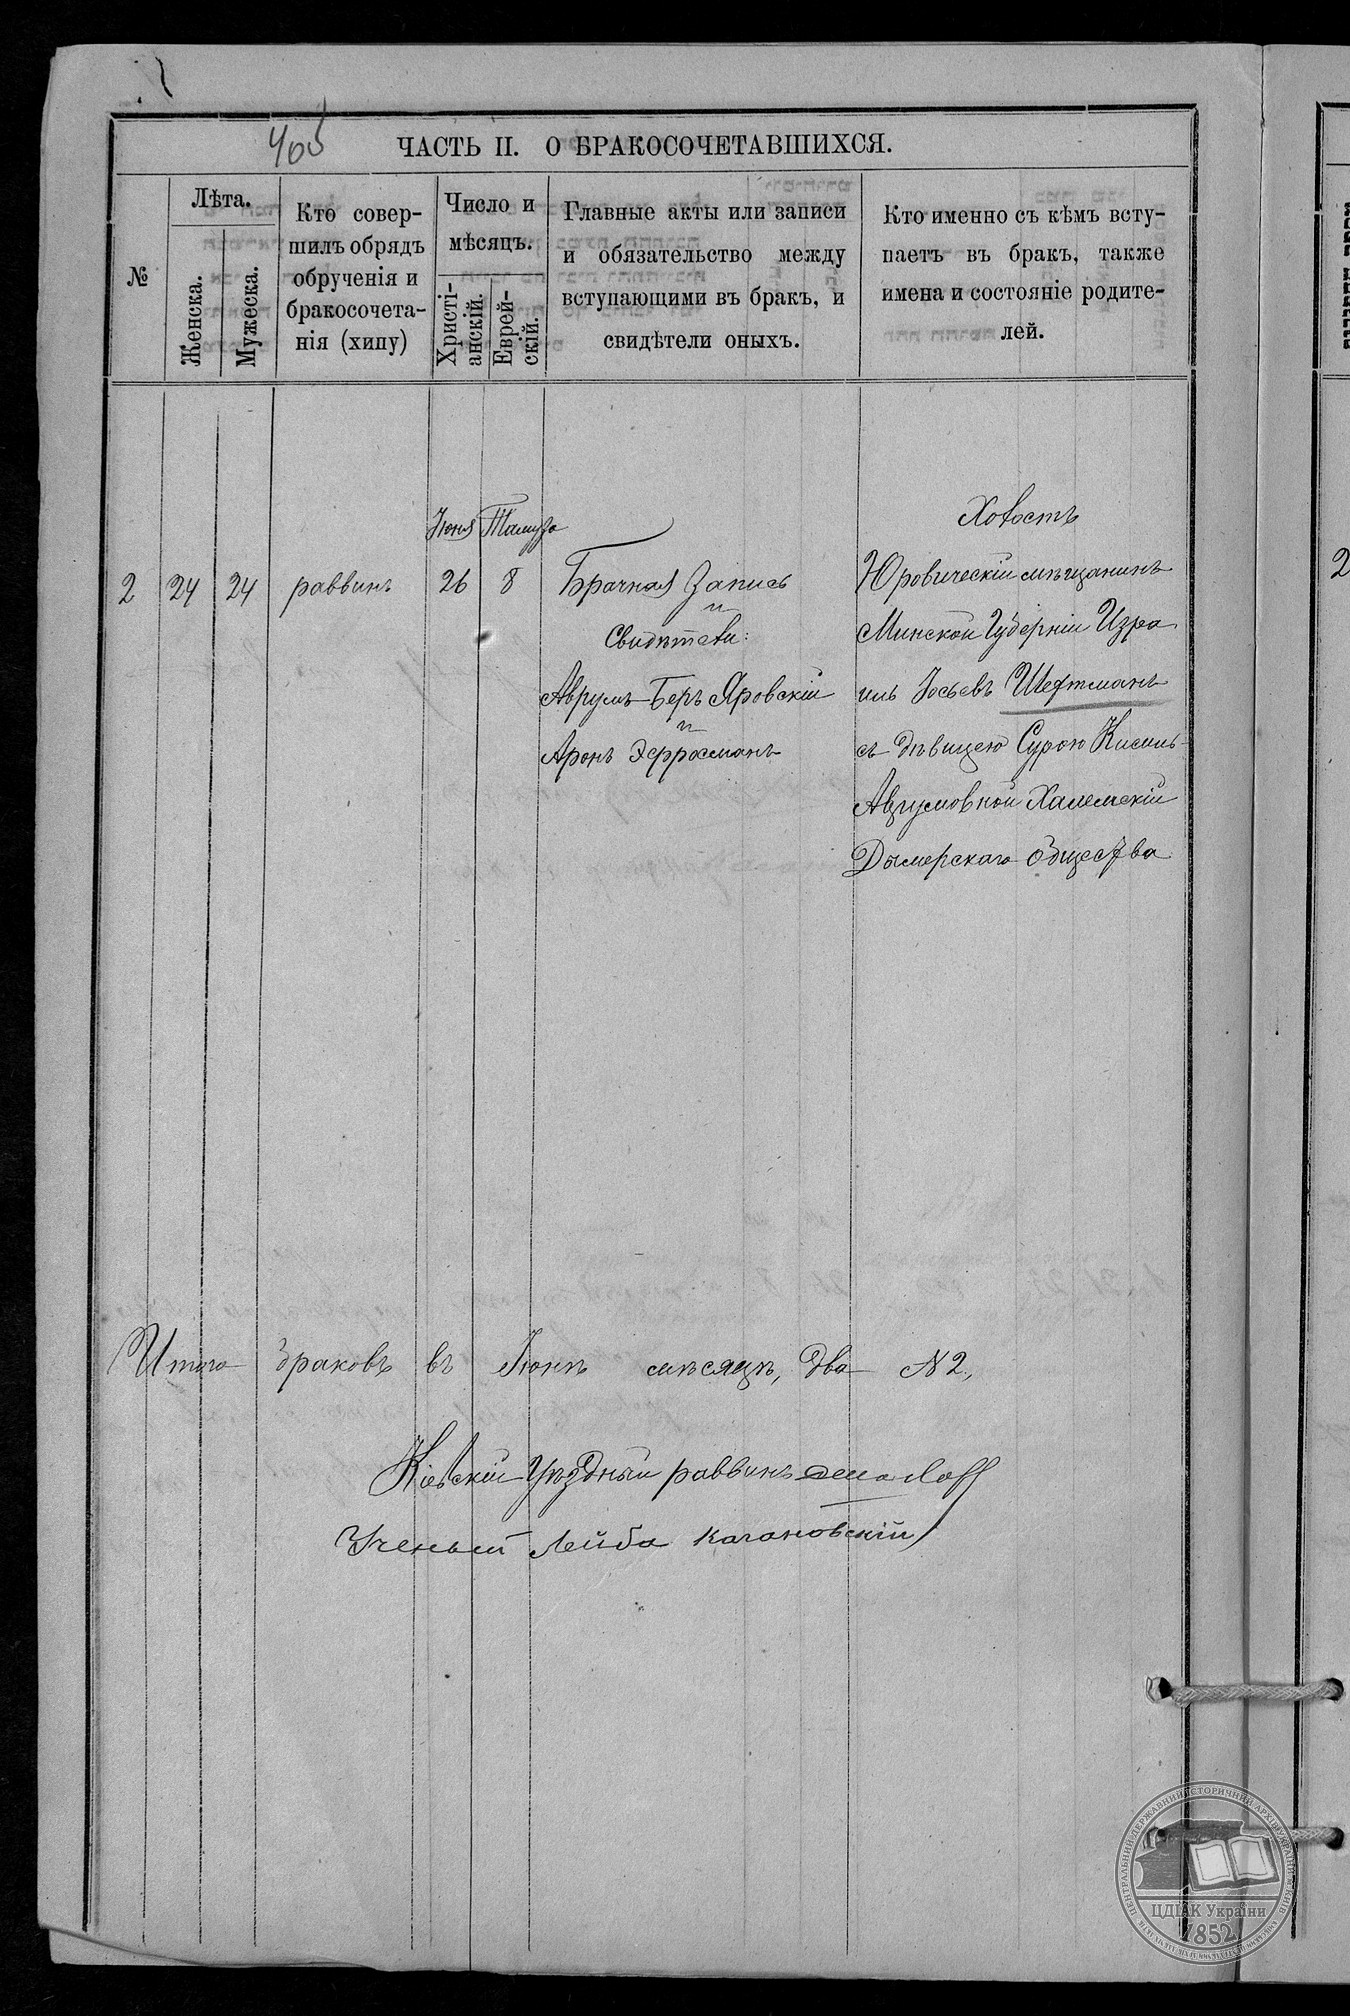 405
ЧАСТЬ II. О БРАКОСОЧЕТАВШИХСЯ.
№
Лѣта.
Женска.
Мужеска.
Кто совер-
шилъ обрядъ
обрученія и
бракосочета-
нія (хипу)
Число и
мѣсяцъ.
Христі-
анскій.
Еврей-
скій.
Главные акты или записи
и обязательство между
вступающими въ бракъ, и
свидѣтели оныхъ.
Кто именно съ кѣмъ всту-
паетъ въ бракъ, также
имена и состояніе родите-
лей.
Июня Тамуза
2 24 24 раввинъ 26 8
Брачная Запись
и
Свидѣтели:
Аврумъ-Беръ Яровскій
и
Аронъ
Холостъ
Юровическій мѣщанинъ
Минской Губерніи Изра
иль Іосьевъ Шефтманъ
съ дѣвицею Сурою
Аврумовной
Дымерскаго общества
Итого браковъ въ Іюнѣ мѣсяцѣ, два N 2,
Кіевскій Уѣздный раввинъ
Ученый Лейба Кагановскій
ЦЕНТРАЛЬНИЙ ДЕРЖАВНИЙ ІСТОРИЧНИЙ АРХІВ УКРАЇНИ, М. КИЇВ
ЦДІАК України
1852